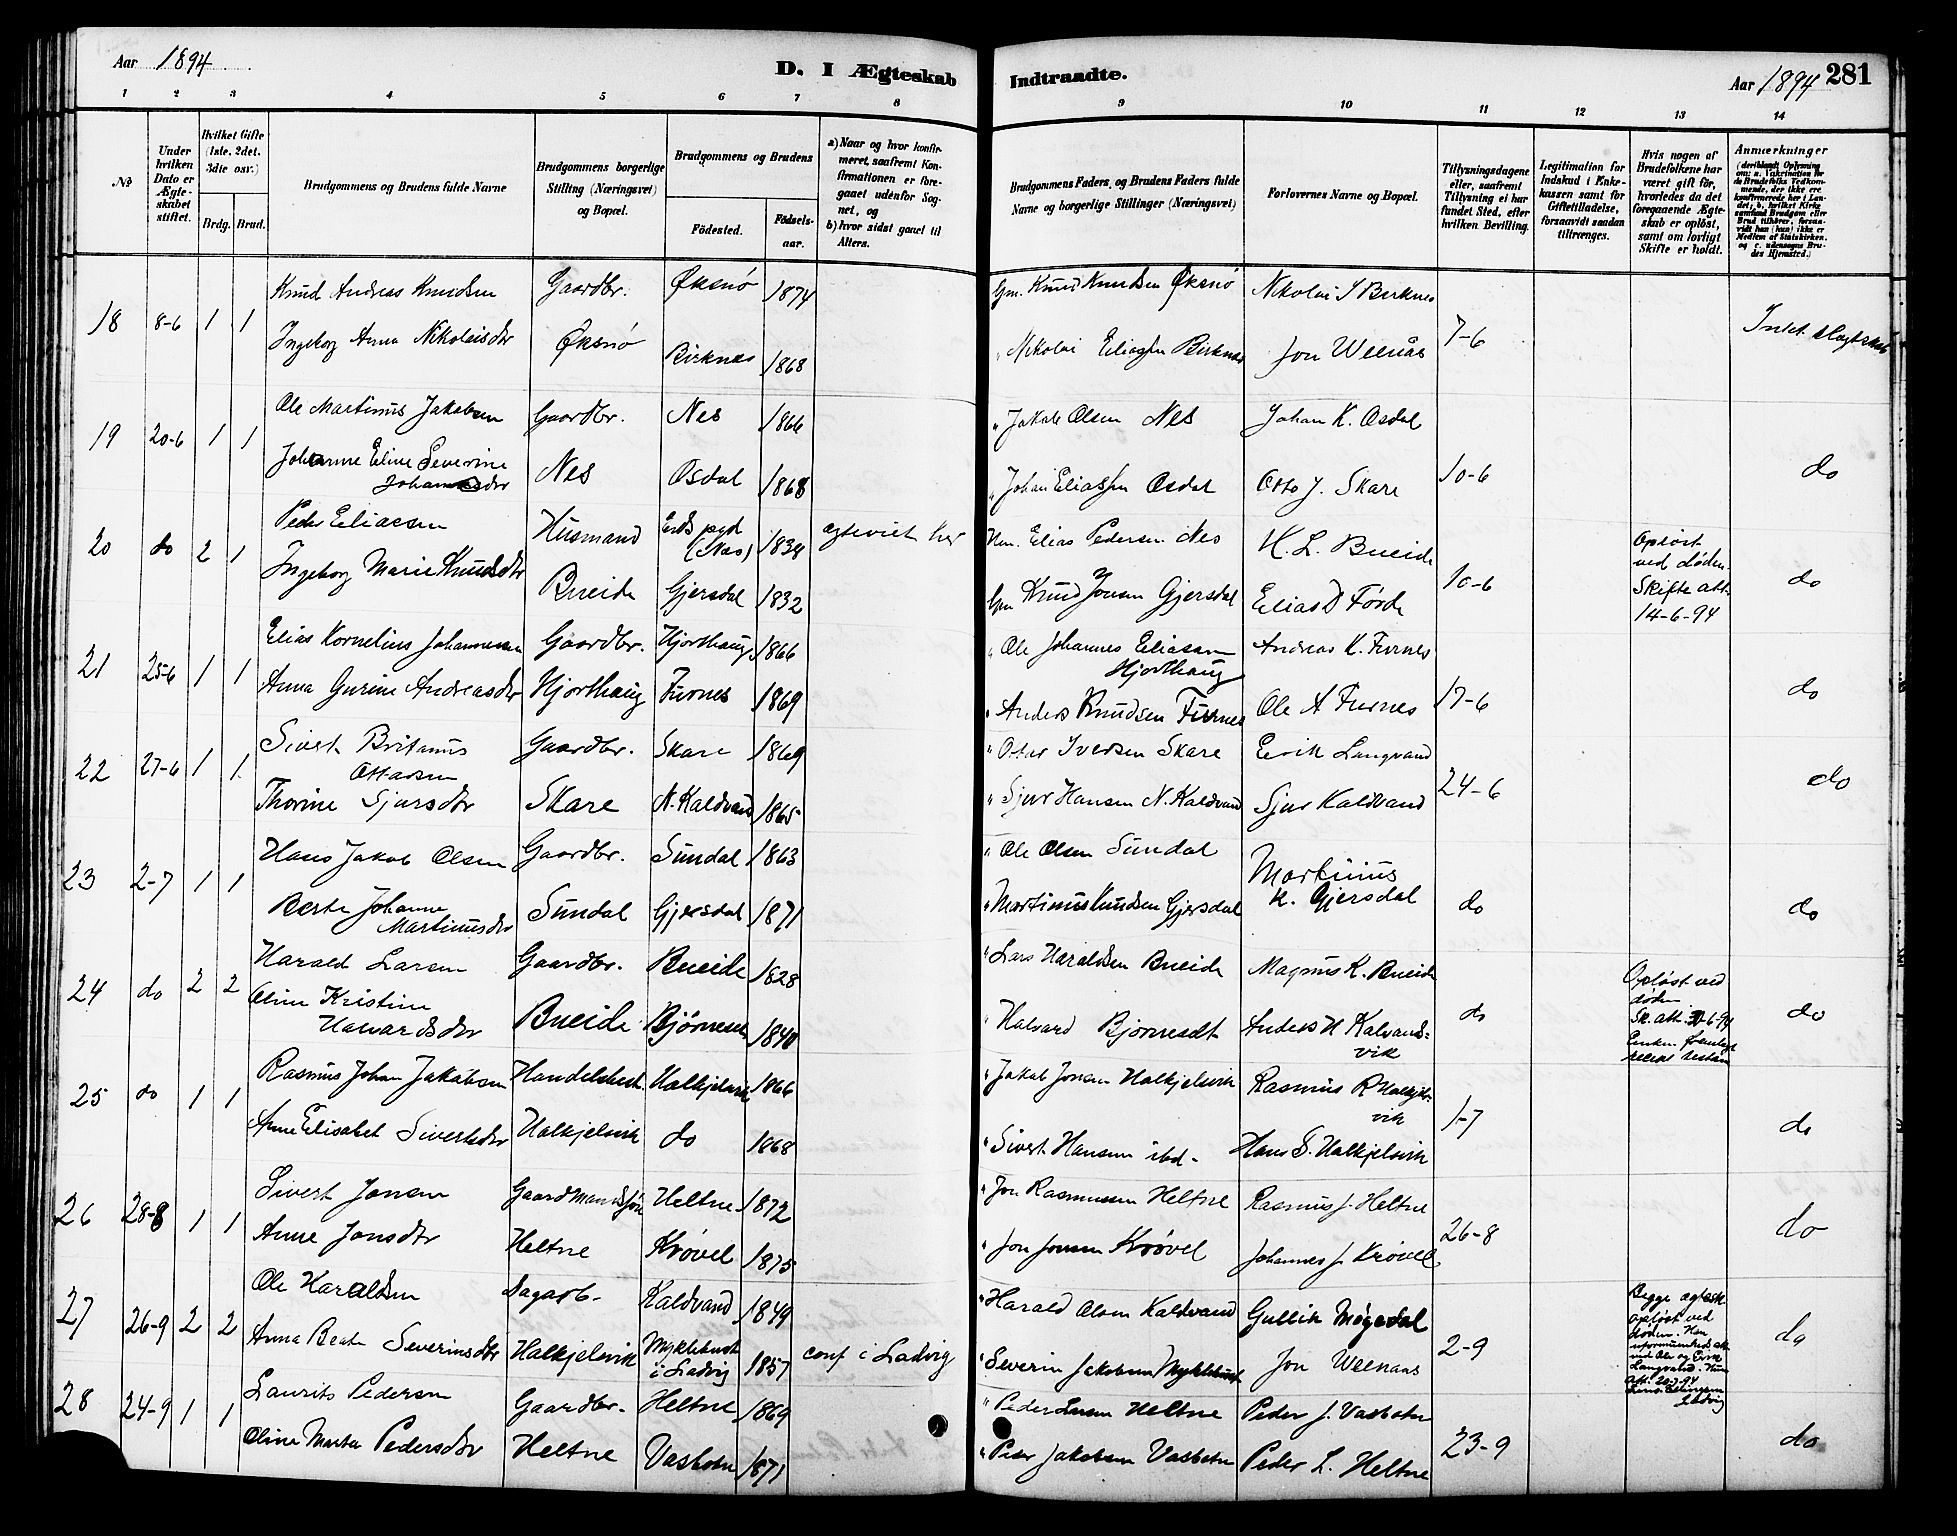 Aar 1894
D. I Ægteskab
Indtraadte.
Aar 1894 281
1 2 3 4 5 6 7 8 9 10 11 12 13 14
No
Under hvilken Dato er Ægteskabet stiftet.
Hvilket Gifte (1ste, 2det, 3dte osv.)
Brdg. Brud.
Brudgommens og Brudens fulde Navne
Brudgommens borgerlige Stilling (Næringsvei) og Bopæl.
Brudgommens og Brudens
Fødested.
Fødselsaar.
a) Naar og hvor konfirmeret, saafremt Konfirmationen er foregaaet udenfor Sognet, og
b) hvor sidst gaaet til Alters.
Brudgommens Faders, og Brudens Faders fulde Navne og borgerlige Stillinger (Næringsvei)
Forlovernes Navne og Bopæl.
Tillysningsdagene eller, saafremt Tillysning ei har fundet Sted, efter hvilken Bevilling.
Legitimation for Indskud i Enkekassen samt for Giftetilladelse, forsaavidt saadan tiltrænges.
Hvis nogen af Brudefolkene har været gift før, hvorledes da det foregaaende Ægteskab er opløst, samt om lovligt Skifte er holdt.
Anmærkninger
18 8-6 1 1 Knud Andreas Knudsen Gaardbr. Øksnø 1874 Gm. Knud Knudsen Øksnø Nikolai J Birknes 7-6 Intet slagtskab
Ingeborg Anna Nikolaisdtr Øksnø Birknes 1868 " Nikolai Eliassen Birknes Jon Welnås
19 20-6 1 1 Ole Martinus Jakobsen Gaardbr. Nes 1866 " Jakob Olsen Nes Johan K. Osdal 10-6 do
Johanne Eline Severine
Johansdtr Nes Osdal 1868 " Johan Eliassen Osdal Otto J. Skare
20 do 2 1 Peder Eliassen Husmand (Nes) 1834 Hm. Elias Pedersen Nes H. L. Bueide 10-6 Opløst
ved døden.
Skifte att.
14-6-94 do
Ingeborg Marie Knudsdtr Bueide Gjersdal 1832 Gm Knud Jonsen Gjersdal Elias D Førde
21 25-6 1 1 Elias Kornelius Johannessen Gaardbr. Hjorthaug 1866 " Ole Johannes Eliassen
Hjorthaug Andreas K. Furnes 17-6 do
Anna Gurine Andreasdtr Hjorthaug Furnes 1869 " Anders Knudsen Furnes Ole A Furnes
22 27-6 1 1 Sivert Britanus
Ottarsen Gaardbr. Skare 1869 " Ottar Iversen Skare Eirik Langvand 24-6 do
Thorine Sjursdtr Skare N. Kaldvand 1865 " Sjur Hansen N. Kaldvand Sjur Kaldvand
23 2-7 1 1 Hans Jakob Olsen Gaardbr. Sundal 1863 " Ole Olsen Sundal Martinus
K. Gjersdal do do
Berte Johanne
Martinusdtr Sundal Gjersdal 1871 " Martinus Knudsen Gjersdal
24 do 2 2 Harald Larsen Gaardbr. Bueide 1828 " Lars Haraldsen Bueide Magnus K. Bueide do Opløst ved
døden
do
Oline Kristine
Halvardsdtr Bueide 1840 " Halvard Anders H Kalvandsvik
25 do 1 1 Rasmus Johan Jakobsen Halkjelsvik 1866 " Jakob Jonsen Halkjelsvik Rasmus R Halkjelsvik 1-7 do
Anne Elisabet Sivertsdtr Halkjelsvik do 1868 " Sivert Hansen ibd. Hans S. Halkjelsvik
26 28-8 1 1 Sivert Jonsen Gaardmandssøn Heltne 1872 " Jon Rasmussen Heltne Rasmus J. Heltne 26-8 do
Anne Jonsdtr Heltne Krøvel 1875 " Jon Jonsen Krøvel Johannes J. Krøvel
27 26-9 2 2 Ole Haraldsen Dagarb. Kaldvand 1849 " Harald Olsen Kaldvand Gullik Møgedal 2-9 Begge ægtesk.
opløst ved
døden.
do
Anna Beate Severinsdtr Halkjelsvik Myklebust
i Ladvig 1857 conf i Ladvig " Severin Jakobsen Myklebust Jon Welnaas
28 24-9 1 1 Laurits Pedersen Gaardbr. Heltne 1869 " Peder Larsen Heltne Peder J. Vasbotn 23-9 do
Oline Marta Pedersdtr Heltne Vasbotn 1871 " Peder Jakobsen Vasbotn Peder L. Heltne